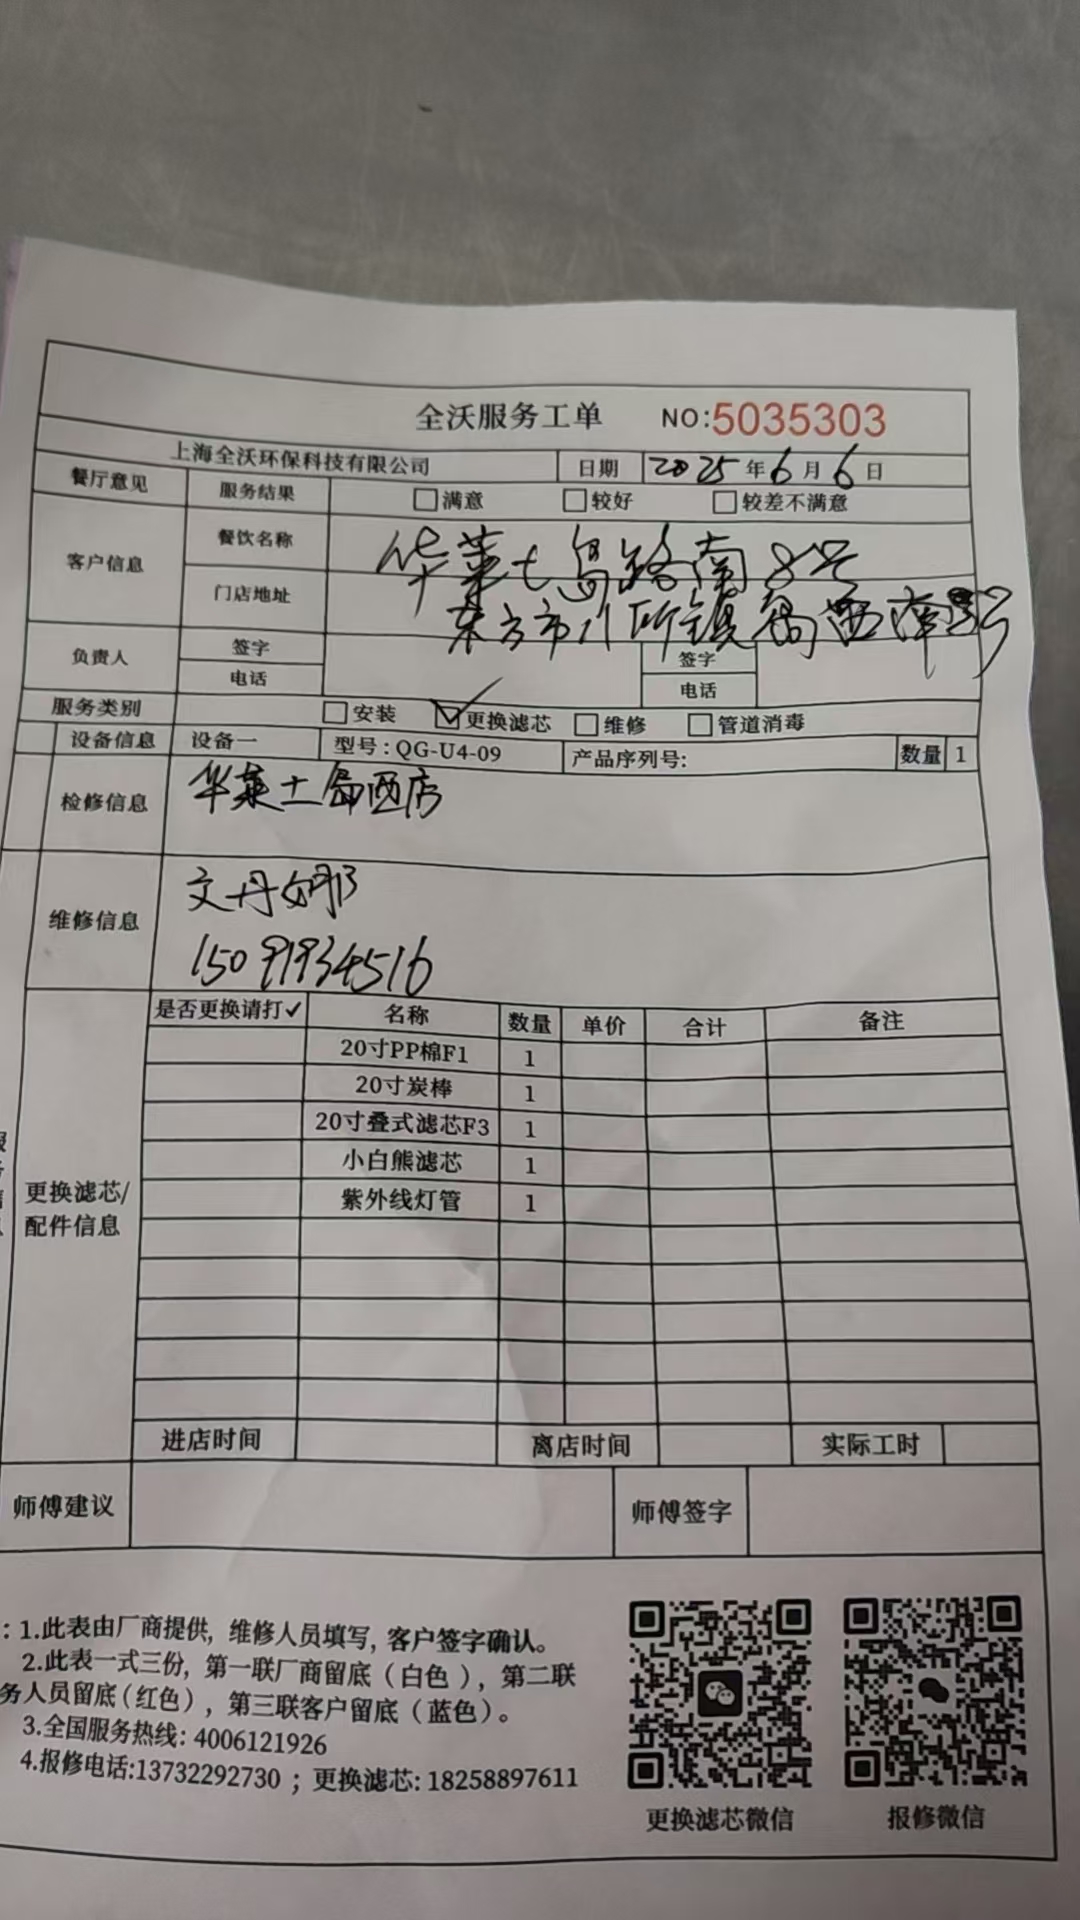 全沃服务工单 NO:5035303
上海全沃环保科技有限公司 日期 2025年6月6日
餐厅意见 服务结果 满意 较好 较差不满意
客户信息 餐饮名称 华莱士岛路南8号
门店地址 东方市八所镇岛西
负责人 签字 签字
电话 电话
服务类别 安装 更换滤芯 维修 管道消毒
设备信息 设备一 型号:QG-U4-09 产品序列号: 数量 1
检修信息 华莱士岛西店
维修信息 文丹娜
15091934516
是否更换请打✓ 名称 数量 单价 合计 备注
20寸PP棉F1 1
20寸炭棒 1
20寸叠式滤芯F3 1
小白熊滤芯 1
紫外线灯管 1
更换滤芯/
配件信息
进店时间 离店时间 实际工时
师傅建议 师傅签字
: 1.此表由厂商提供, 维修人员填写, 客户签字确认。
2.此表一式三份, 第一联厂商留底（白色）, 第二联
务人员留底(红色), 第三联客户留底（蓝色）。
3.全国服务热线: 4006121926
4.报修电话:13732292730 ; 更换滤芯: 18258897611
更换滤芯微信 报修微信